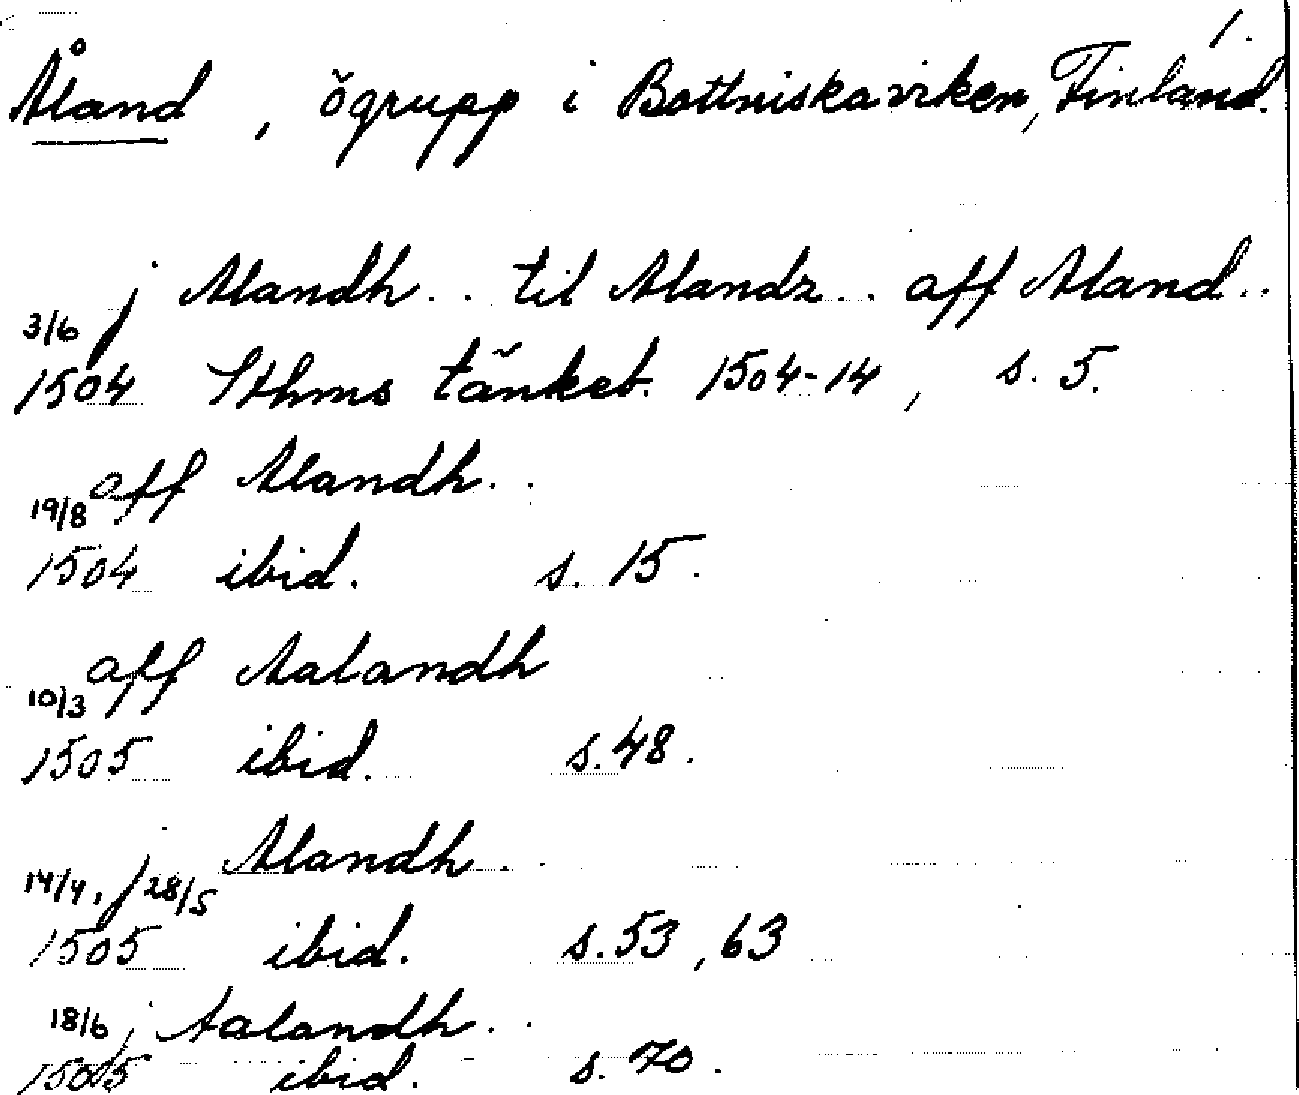 1.
Åland, ögrupp i Bottniska viken, Finland.
j Alandh.. til Alandz.. aff Aland..
3/6
1504 Sthms tänkeb. 1504-14, s. 5.
aff Alandh..
19/8
1504 ibid. s. 15.
aff Aalandh
10/3
1505 ibid. s. 48.
j Alandh..
14/4, 28/5
1505 ibid. s. 53, 63
18/6 j Aalandh..
1505 ibid. s. 70.